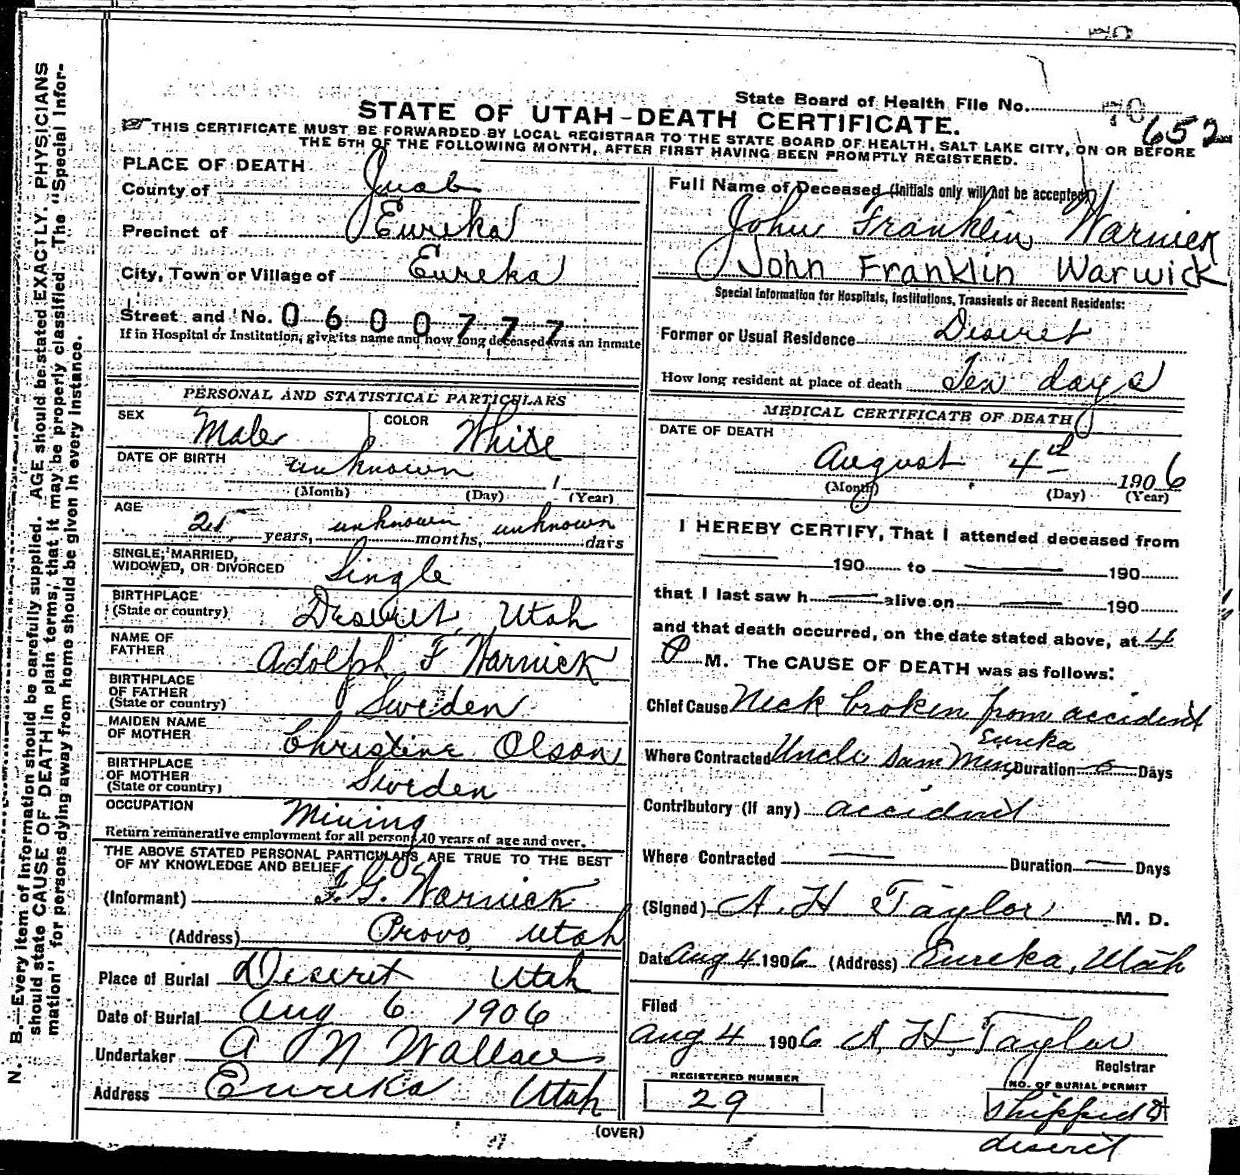 State Board of Health File No. 70
652
STATE OF UTAH-DEATH CERTIFICATE.
THIS CERTIFICATE MUST BE FORWARDED BY LOCAL REGISTRAR TO THE STATE BOARD OF HEALTH, SALT LAKE CITY, ON OR BEFORE
THE 5TH OF THE FOLLOWING MONTH, AFTER FIRST HAVING BEEN PROMPTLY REGISTERED.
N. B.—Every item of information should be carefully supplied. AGE should be stated EXACTLY. PHYSICIANS
should state CAUSE OF DEATH in plain terms, that it may be properly classified. The "Special Infor-
mation" for persons dying away from home should be given in every instance.
PLACE OF DEATH
County of Juab
Precinct of Eureka
City, Town or Village of Eureka
Street and No. 0600777
If in Hospital or Institution, give its name and how long deceased was an inmate
PERSONAL AND STATISTICAL PARTICULARS
SEX Male COLOR White
DATE OF BIRTH unknown
(Month) (Day) (Year)
AGE
25 years, unknown months, unknown days
SINGLE, MARRIED,
WIDOWED, OR DIVORCED Single
BIRTHPLACE
(State or country) Deseret, Utah
NAME OF
FATHER Adolph F Warnick
BIRTHPLACE
OF FATHER
(State or country) Sweden
MAIDEN NAME
OF MOTHER Christine Olson
BIRTHPLACE
OF MOTHER
(State or country) Sweden
OCCUPATION Mining
Return remunerative employment for all persons 10 years of age and over.
THE ABOVE STATED PERSONAL PARTICULARS ARE TRUE TO THE BEST
OF MY KNOWLEDGE AND BELIEF
(Informant) F. G. Warnick
(Address) Provo Utah
Place of Burial Deseret Utah
Date of Burial Aug 6 1906
Undertaker A N Wallace
Address Eureka Utah
Full Name of Deceased (Initials only will not be accepted)
John Franklin Warnick
John Franklin Warwick
Special Information for Hospitals, Institutions, Transients or Recent Residents:
Former or Usual Residence Diseret
How long resident at place of death Ten days
MEDICAL CERTIFICATE OF DEATH
DATE OF DEATH
August 4th 1906
(Month) (Day) (Year)
I HEREBY CERTIFY, That I attended deceased from
190 to 190
that I last saw h alive on 190
and that death occurred, on the date stated above, at 4
P M. The CAUSE OF DEATH was as follows:
Chief Cause Neck broken from accident
Eureka
Where Contracted Uncle Sam Mine Duration 0 Days
Contributory (if any) accident
Where Contracted — Duration — Days
(Signed) A. H Taylor M. D.
Date Aug 4 1906 (Address) Eureka, Utah
Filed
Aug 4 1906 A. H. Taylor
Registrar
REGISTERED NUMBER
29
NO. OF BURIAL PERMIT
shipped to
diseret
(OVER)